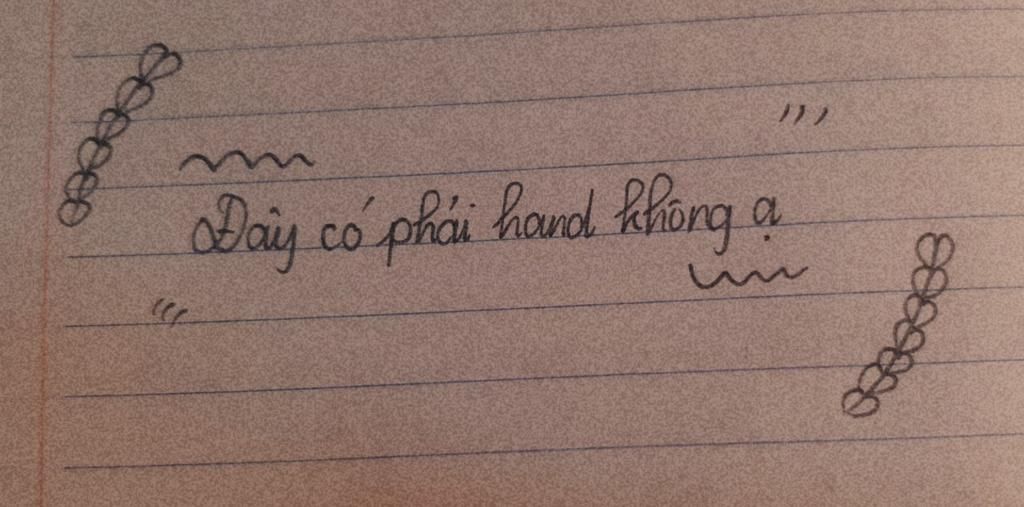 Đây có phải hand không ạ